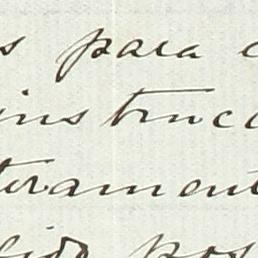 s para c
instrucc
teramente
 pos